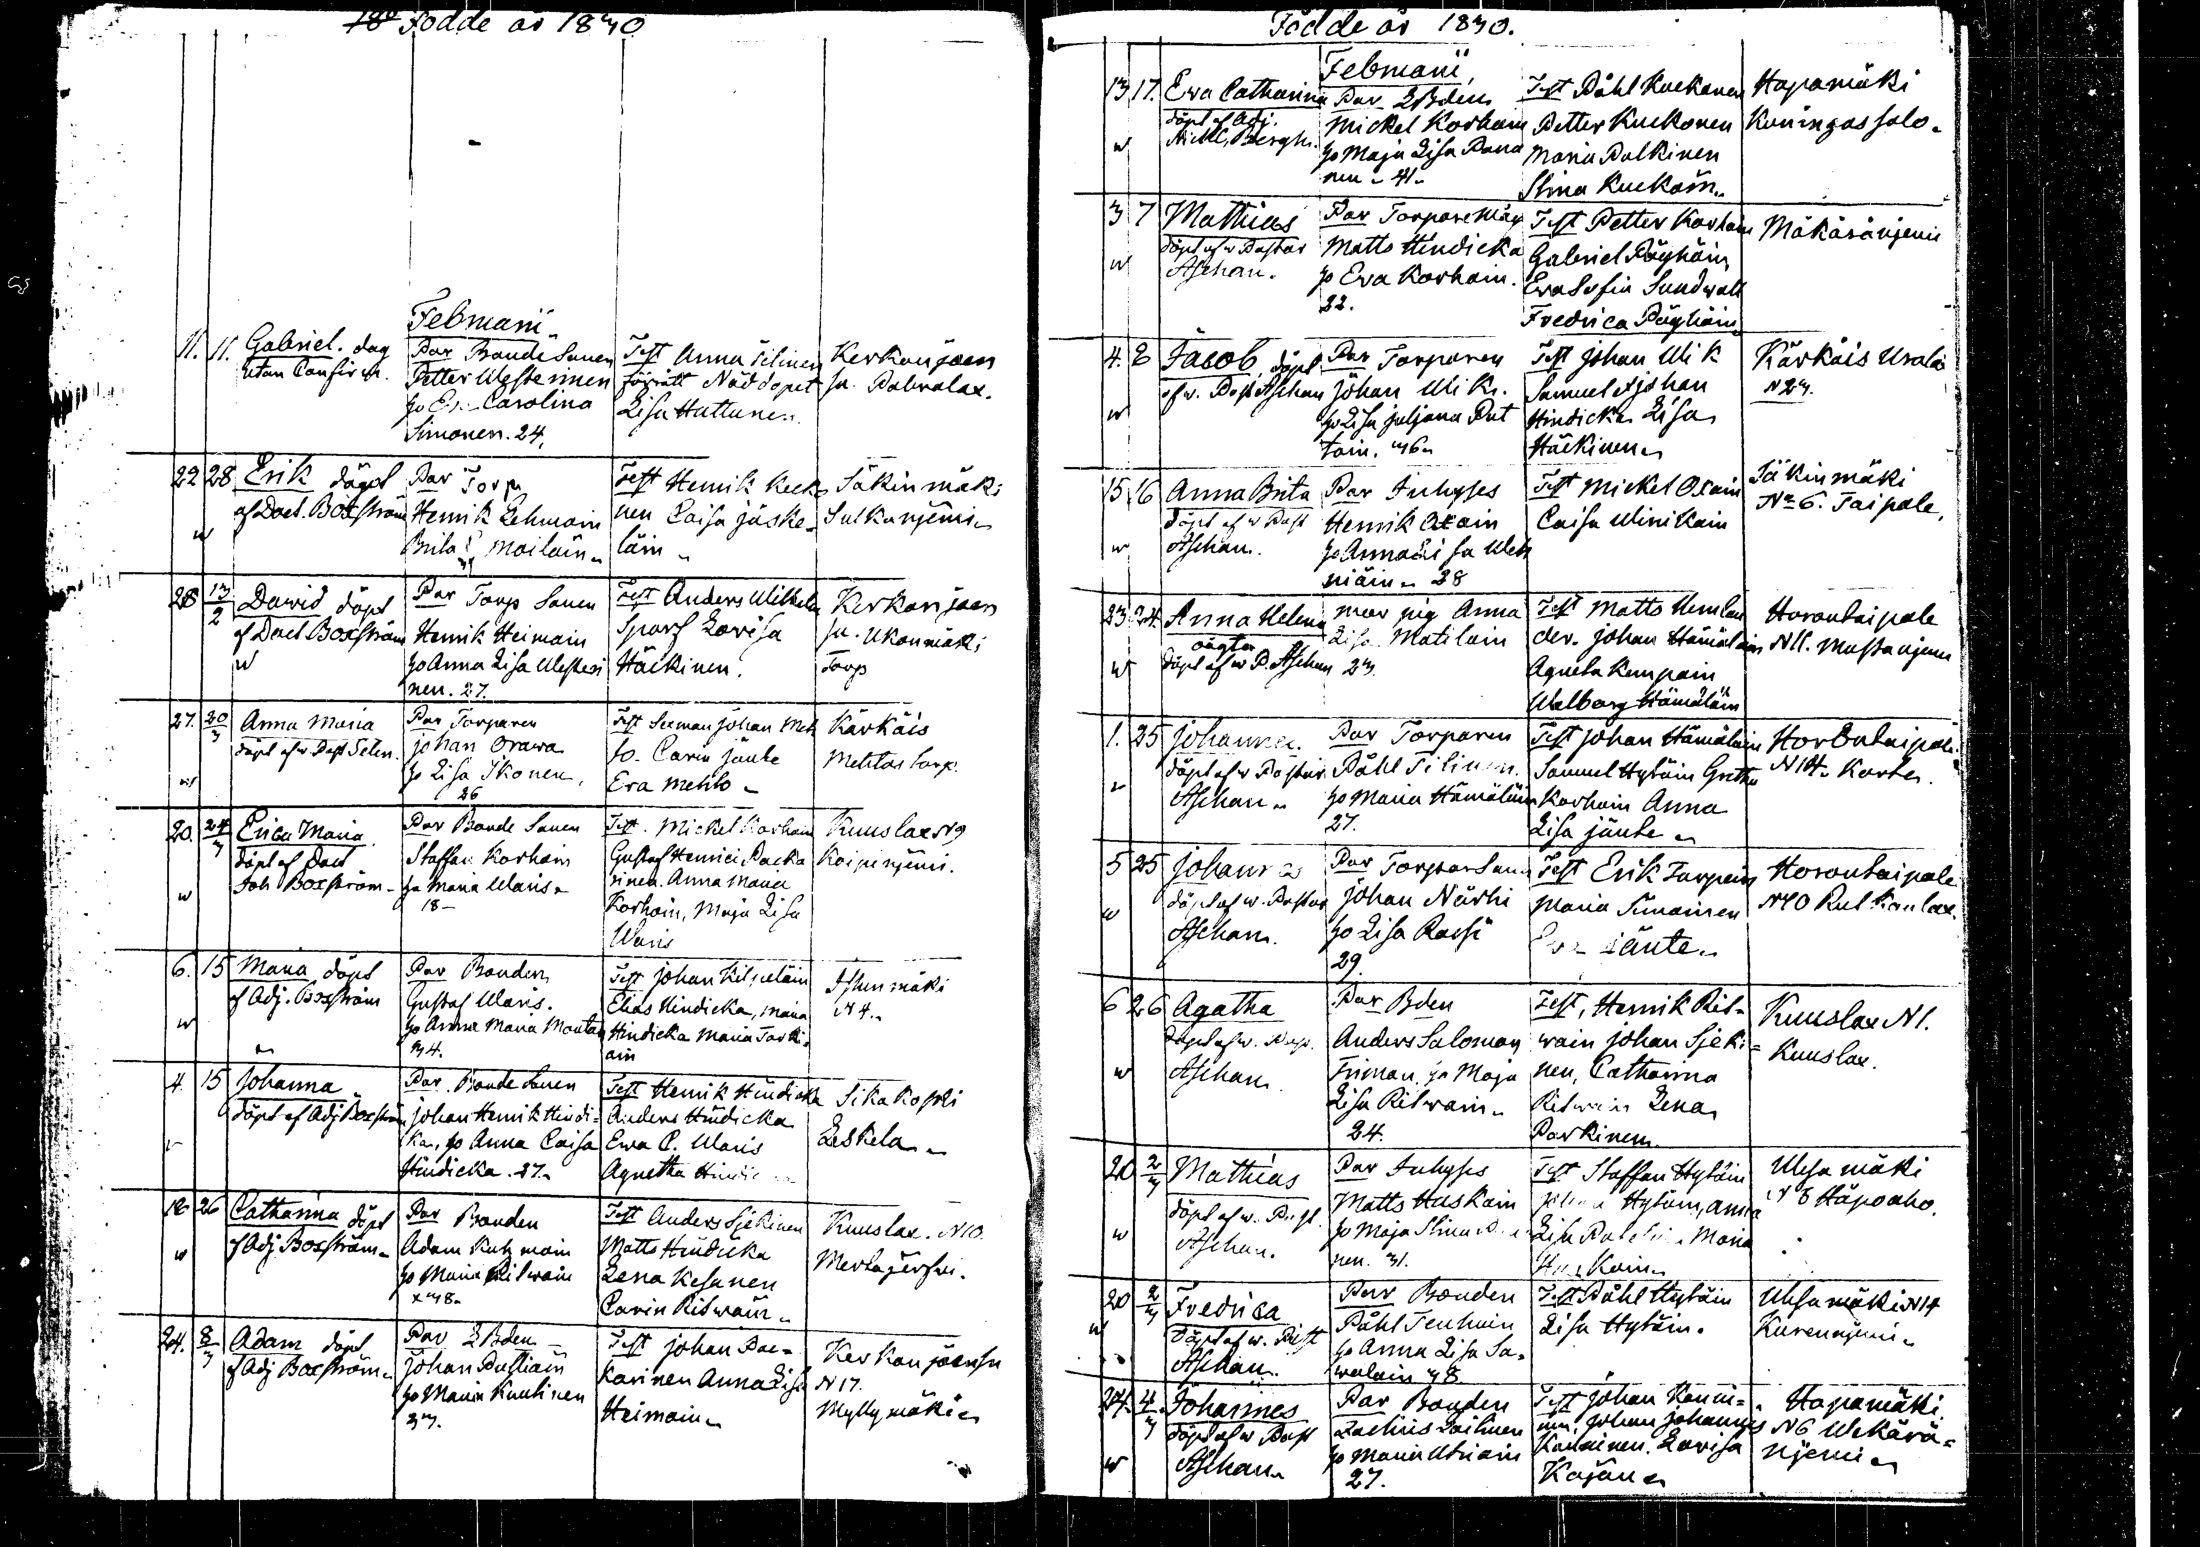 Födde år 1830
Februarii
11. 11. Gabriel. dog
utan Confirm.
Par Bonde Sonen
Petter Westerinen
Carolina
Simonen. 24.
Test Anna Tilinen
förrätt Nöddopet
Lisa Hattunen.
Kerkonjoen
su. Palvalax.
22 28 Erik döpt
af Doct. Boxström
w
Par Torp
Henrik Lehmoin
Brita Moilain
Test Henrik Keck
nen Caisa Jäske-
läin
Säkinmäki
Sutkanjemi
28 13/2 Dawid döpt
af Doct Boxström
w
Par Torp Sonen
Henrik Heimoin
ho Anna Lisa Westeri
nen. 27.
Test Anders Wilhelm
Sparf Lovisa
Häckinen.
Kerkonjoen
su. Ukonmäki
Torp
27. 20/3 Anna Maria
döpt af w Past Selen.
Par Torparen
Johan Orawa
ho Lisa Ikonen,
26
Test Seeman Johan Meh
to. Carin Jänte
Eva Mehto
Kärkäis
Mehtos torp.
20. 24/3 Erica Maria
döpt af Doct
Joh Boxström
w
Par Bonde Sonen
Staffan Korhoin
ho Maria Waris
18
Test. Mickel Korhoin
Gustaf Henrici Packa
rinen. Anna Maria
Korhoin, Maja Lisa
Waris
Kuuslax N 9
Koipiinjemi.
6. 15 Maria döpt
af Adj. Boxström
w
Par Bonden
Gustaf Waris.
ho Anna Maria Monton
34.
Test Johan Kilpeläin
Elias Hindicka, Maria
Hindicka Maria Taski-
ain
N 4.
4. 15 Johanna
döpt af Adj Boxström
Par. Bonde Sonen
Johan Henrik Hindi-
ka, ho Anna Caisa
Hindicka. 27.
Test Henrik Hindicka
Anders Hindicka
Ewa C. Waris
Agnetha Hindic
Sikakoski
Leskela
26 Catharina döpt
af Adj. Boxström
w
Par Bonden
Adam Kuhmoin
ho Maria Ritwain
38
Test Anders Sjekinen
Matts Hindicka
Lena Kesanen
Carin Ritwain
Kuuslax. N 10.
Mertajerfwi.
24. 8/3 Adam döpt
af Adj Boxström
Par Bden
Johan Puttiain
ho Maria Kuutinen
33.
Test Johan Pac-
karinen Anna Lisa
Heimoin
Kerkonjoensu
N 17.
Myllymäki
Födde år 1830.
Februarii,
13 17. Ewa Catharina
döpt af Adj.
Bergh.
w
Par Bden
Mickel Korhoin
ho Maja Lisa Pana
nen 41
Test Påhl Kuckonen
Petter Kuckonen
Maria Pulkinen
Stina Kuckoin.
Hapamäki
Koningassalo.
3 7 Mathias
döpt af w Pastor
Aschan.
w
Par Torpare Måg
Matts Hindicka
ho Eva Korhoin.
22.
Test Petter Korhoin
Gabriel Pöyhöin
Eva Sofia Sundwall
Fredrica Pöyhöin
Mäkäränjemi
4. 8 Jacob, döpt
af w. Past Aschan
w
Par Torparen
Johan Wik.
ho Lisa Juljana Put
toin. 36
Test Johan Wik
Samuel & Johan
Hindicka Lisa
Häckinen
Kärkäis
N 23.
15 16 Anna Brita
döpt af w Past
Aschan.
w
Par Inhyses
Henrik Oxain
ho Anna Lisa Weh
niäin 38
Test Mickel Oxain
Caisa Winikain
Säkinmäki
No 6. Taipale,
23. 24. Anna Helena
oägta
döpt af w P. Aschan
w
mor pig Anna
Lisa Matilain
23.
Test Matts Hemlan
der. Johan Hämäläin
Agneta Kumpain
Walborg Hämäläin
Horontaipale
N 11. Mustanjemi
1. 25 Johanna.
döpt af w Pastor
Aschan
Par Torparen
Påhl Tilinen.
ho Maria Hämäläin
27.
Test Johan Hämäläin
Samuel Hytöin Gretha
Korhoin Anna
Lisa Jänte
Horontaipale
N 14. Korte.
5 25 Johanna
döpt af w. Pastor
Aschan.
w
Par Torpar Son
Johan Närhi
ho Lisa Rassi
29.
Test Erik Turpein
Maria Simoinen
Horontaipale
N 10 Rutkanlax.
6 26 Agatha
döpt af w. Past.
Aschan
w
Par Bden
Anders Salomon
Friman, ho Maja
Lisa Ritwain.
24.
Test, Henrik Rit-
wain Johan Sjeki-
nen, Catharina
Ritwain Lena
Parkinen.
Kuuslax N 1.
Kuuslax.
20 2/3 Mathias
döpt af w. Past.
Aschan.
w
Par Inhyses
Matts Huskoin
ho Maja Stina
nen. 31.
Test Staffan Hytöin
Hytöin, Anna
Lisa Maria
Huskoin
Wesamäki
N 8 Häpoaho.
20 2/3 Fredrica
döpt af w. Past
Aschan.
w
Par Bonden
Påhl Tenhuin
ho Anna Lisa Sa-
walain 38
Test Påhl Hytöin
Lisa Hytöin.
Wesamäki N 14
Kurenjemi
24. 4/3 Johannes
döpt af w Past
Aschan
w
Par Bonden
Zachris Laitinen
ho Maria Utriain
27.
Test Johan Konni-
nen, Johan Johannes
Lovisa
Kojon
Hapamäki
N 6 Wekärä-
njemi